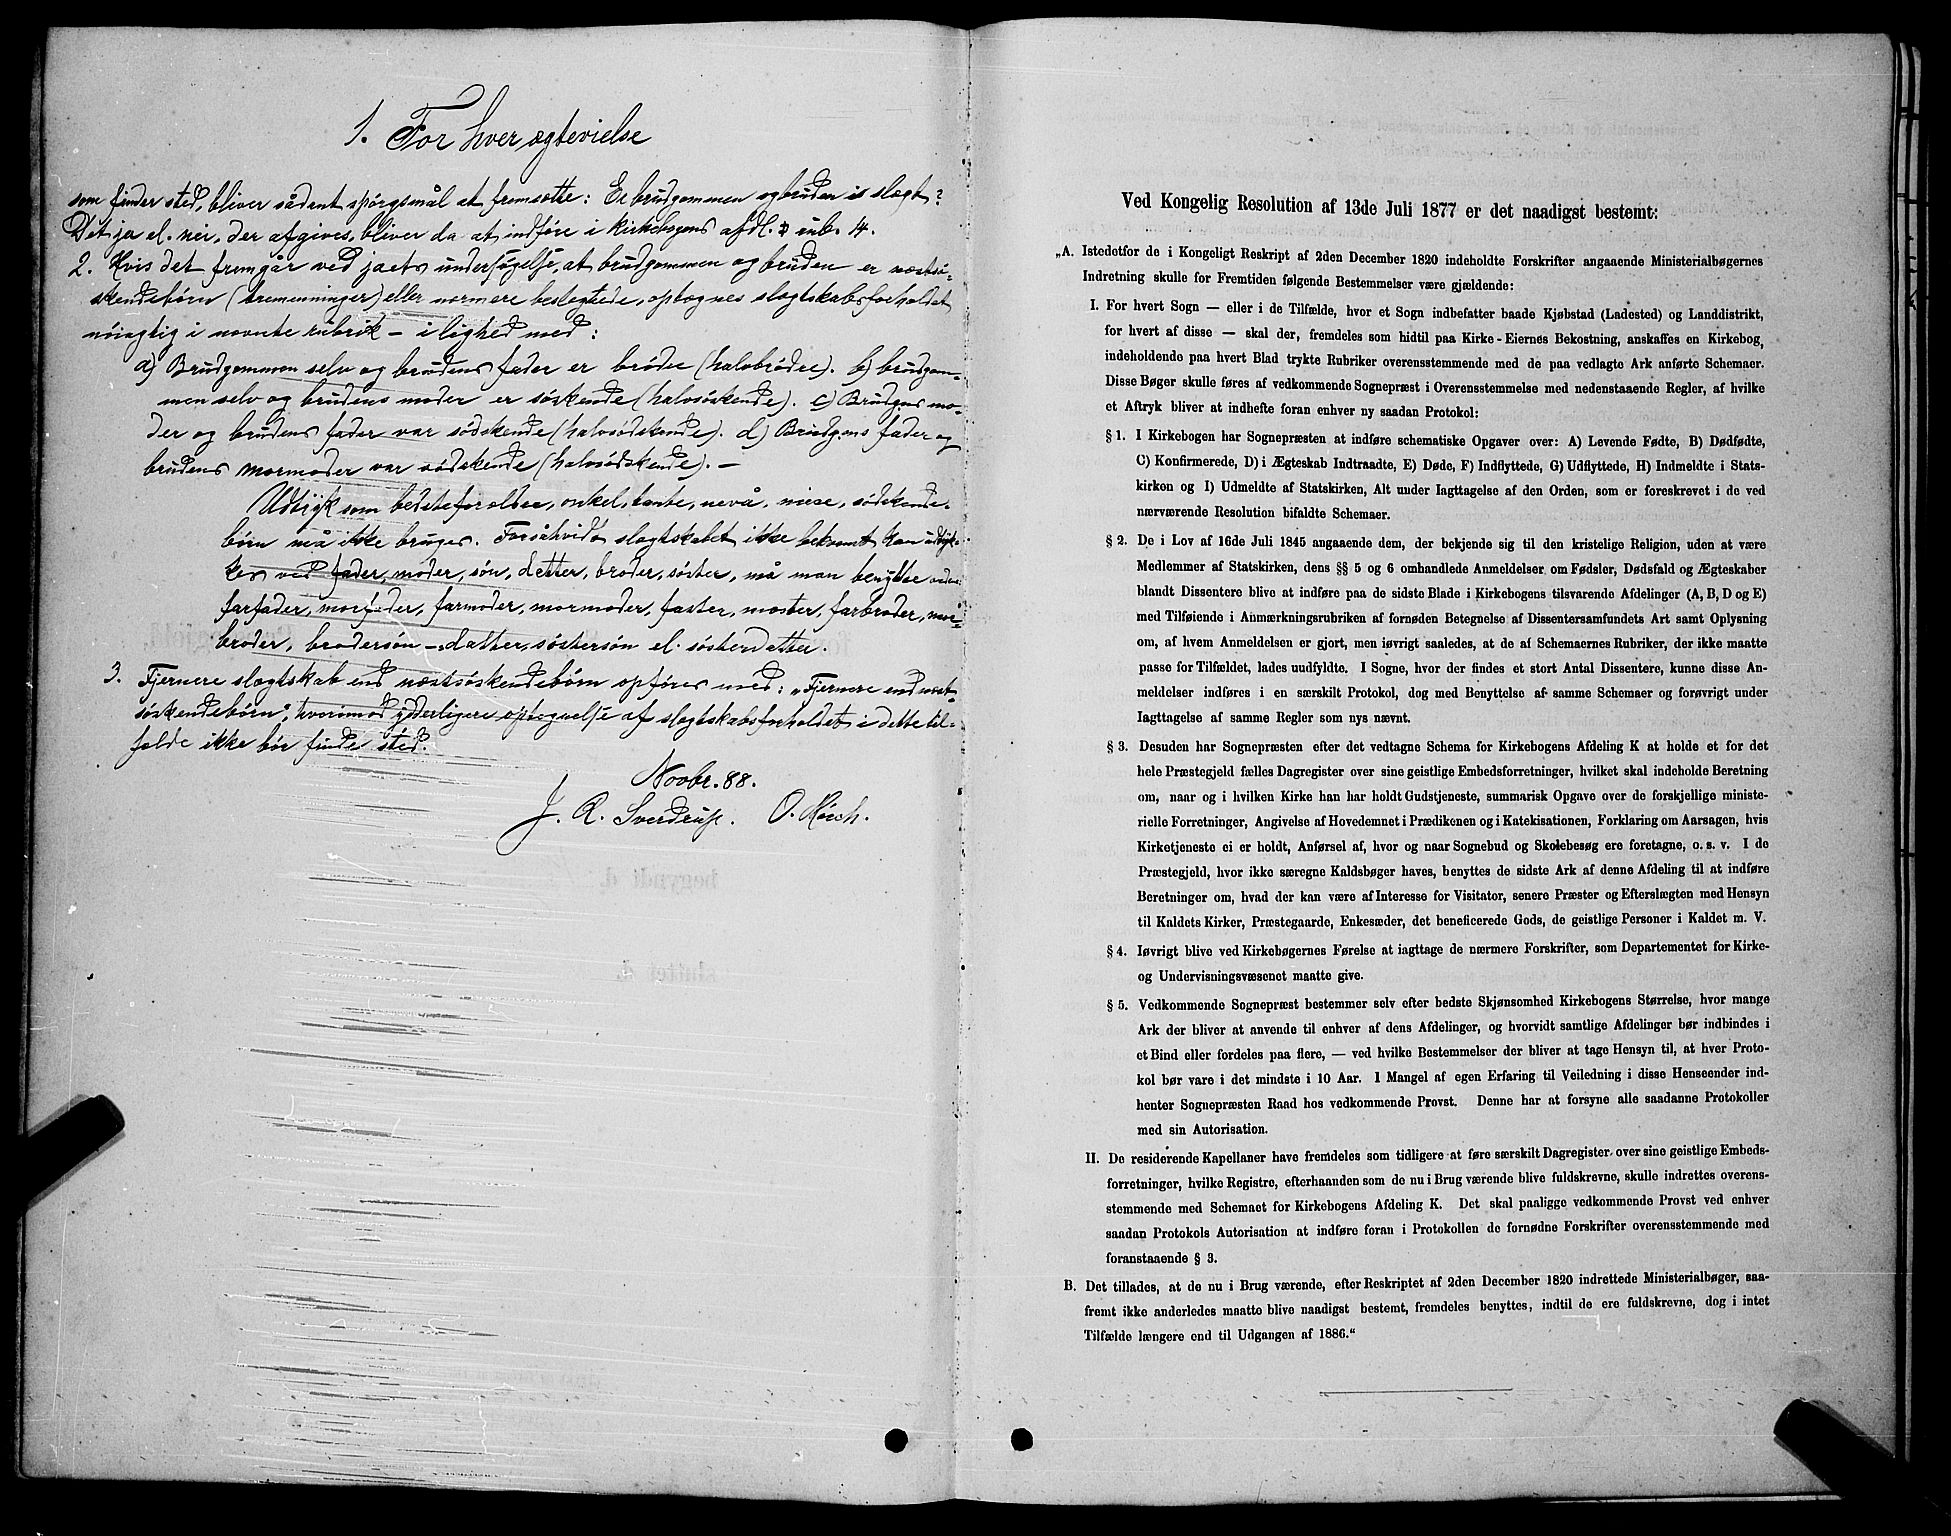 1. For hver ægtevielse
som finder sted, bliver sådant spörgsmål at fremsætte: Er brudgommen og bruden i slægt?
Det ja el. nei, der afgives, bliver da at indføre i kirkebogens afdl. D rub. 4.
2. Hvis det fremgår ved jaets undersøgelse, at brudgommen og bruden er næstsö-
skendebörn (tremenninger) eller nærmere beslægtede, optegnes slægtskabsforholdet
nöiagtig i nævnte rubrik – i lighed med:
a) Brudgommen selv og brudens fader er brödre (halvbrödre). b) brudgom-
men selv og brudens moder er söskende (halvsöskende). c) Brudgms mo-
der og brudens fader var södskende (halvsödskende). d) Brudgms fader og
brudens mormoder var södskende (halvsödskende). –
Udtryk som bedsteforældre, onkel, tante, nevö, niese, södskende-
börn må ikke bruges. Forsåhvidt slægtskabet ikke bekvemt kan udtryk-
kes ved fader, moder, sön, datter, broder, söster, må man benytte ordene:
farfader, morfader, farmoder, mormoder, faster, moster, farbroder, mor-
broder, brodersön – datter, söstersön el. sösterdatter.
3. Fjernere slægtskab end næstsöskendebörn opföres med: „Fjernere end næst-
söskendebörn“, hvorimod yderligere optegnelse af slægtskabsforholdet i dette til-
fælde ikke bör finde sted.
Novbr. 88.
J. R. Sverdrup. O. Mörch.
Ved Kongelig Resolution af 13de Juli 1877 er det naadigst bestemt:
„A. Istedetfor de i Kongeligt Reskript af 2den December 1820 indeholdte Forskrifter angaaende Ministerialbøgernes
Indretning skulle for Fremtiden følgende Bestemmelser være gjældende:
I. For hvert Sogn — eller i de Tilfælde, hvor et Sogn indbefatter baade Kjøbstad (Ladested) og Landdistrikt,
for hvert af disse — skal der, fremdeles som hidtil paa Kirke-Eiernes Bekostning, anskaffes en Kirkebog,
indeholdende paa hvert Blad trykte Rubriker overensstemmende med de paa vedlagte Ark anførte Schemaer.
Disse Bøger skulle føres af vedkommende Sognepræst i Overensstemmelse med nedenstaaende Regler, af hvilke
et Aftryk bliver at indhefte foran enhver ny saadan Protokol:
§ 1. I Kirkebogen har Sognepræsten at indføre schematiske Opgaver over: A) Levende Fødte, B) Dødfødte,
C) Konfirmerede, D) i Ægteskab Indtraadte, E) Døde, F) Indflyttede, G) Udflyttede, H) Indmeldte i Stats-
kirken og I) Udmeldte af Statskirken, Alt under Iagttagelse af den Orden, som er foreskrevet i de ved
nærværende Resolution bifaldte Schemaer.
§ 2. De i Lov af 16de Juli 1845 angaaende dem, der bekjende sig til den kristelige Religion, uden at være
Medlemmer af Statskirken, dens §§ 5 og 6 omhandlede Anmeldelser om Fødsler, Dødsfald og Ægteskaber
blandt Dissentere blive at indføre paa de sidste Blade i Kirkebogens tilsvarende Afdelinger (A, B, D og E)
med Tilføiende i Anmærkningsrubriken af fornøden Betegnelse af Dissentersamfundets Art samt Oplysning
om, af hvem Anmeldelsen er gjort, men iøvrigt saaledes, at de af Schemaernes Rubriker, der ikke maatte
passe for Tilfældet, lades uudfyldte. I Sogne, hvor der findes et stort Antal Dissentere, kunne disse An-
meldelser indføres i en særskilt Protokol, dog med Benyttelse af samme Schemaer og forøvrigt under
Iagttagelse af samme Regler som nys nævnt.
§ 3. Desuden har Sognepræsten efter det vedtagne Schema for Kirkebogens Afdeling K at holde et for det
hele Præstegjeld fælles Dagregister over sine geistlige Embedsforretninger, hvilket skal indeholde Beretning
om, naar og i hvilken Kirke han har holdt Gudstjeneste, summarisk Opgave over de forskjellige ministe-
rielle Forretninger, Angivelse af Hovedemnet i Prædikenen og i Katekisationen, Forklaring om Aarsagen, hvis
Kirketjeneste ei er holdt, Anførsel af, hvor og naar Sognebud og Skolebesøg ere foretagne, o. s. v. I de
Præstegjeld, hvor ikke særegne Kaldsbøger haves, benyttes de sidste Ark af denne Afdeling til at indføre
Beretninger om, hvad der kan være af Interesse for Visitator, senere Præster og Efterslægten med Hensyn
til Kaldets Kirker, Præstegaarde, Enkesæder, det beneficerede Gods, de geistlige Personer i Kaldet m. V.
§ 4. Iøvrigt blive ved Kirkebøgernes Førelse at iagttage de nærmere Forskrifter, som Departementet for Kirke-
og Undervisningsvæsenet maatte give.
§ 5. Vedkommende Sognepræst bestemmer selv efter bedste Skjønsomhed Kirkebogens Størrelse, hvor mange
Ark der bliver at anvende til enhver af dens Afdelinger, og hvorvidt samtlige Afdelinger bør indbindes i
et Bind eller fordeles paa flere, — ved hvilke Bestemmelser der bliver at tage Hensyn til, at hver Proto-
kol bør vare i det mindste i 10 Aar. I Mangel af egen Erfaring til Veiledning i disse Henseender ind-
henter Sognepræsten Raad hos vedkommende Provst. Denne har at forsyne alle saadanne Protokoller
med sin Autorisation.
II. De residerende Kapellaner have fremdeles som tidligere at føre særskilt Dagregister over sine geistlige Embeds-
forretninger, hvilke Registre, efterhaanden som de nu i Brug værende blive fuldskrevne, skulle indrettes overens-
stemmende med Schemaet for Kirkebogens Afdeling K. Det skal paaligge vedkommende Provst ved enhver
saadan Protokols Autorisation at indføre foran i Protokollen de fornødne Forskrifter overensstemmende med
foranstaaende § 3.
B. Det tillades, at de nu i Brug værende, efter Reskriptet af 2den December 1820 indrettede Ministerialbøger, saa-
fremt ikke anderledes maatte blive naadigst bestemt, fremdeles benyttes, indtil de ere fuldskrevne, dog i intet
Tilfælde længere end til Udgangen af 1886.“